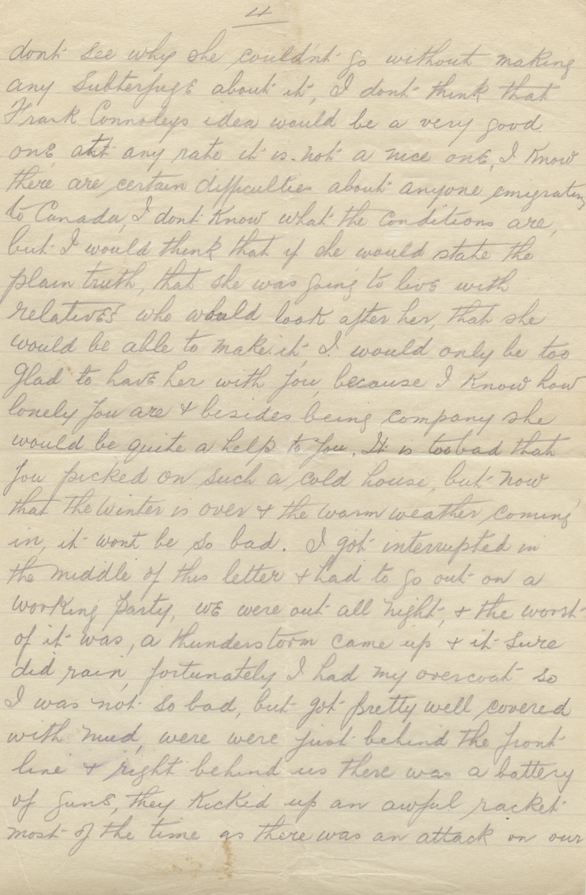 4
dont see why she couldn't go without making
any subterfuge about it, I dont think that
Frank Connoleys idea would be a very good
one, at any rate it is not a nice one, I know
there are certain difficulties about anyone emigrating
to Canada, I dont know what the conditions are,
but I would think that if she would state the
plain truth, that she was going to live with
relatives who would look after her, that she
would be able to make it. I would only be too
glad to have her with you, because I know how
lonely you are & besides being company she
would be quite a help to you. It is too bad that
you picked on such a cold house, but now
that the winter is over & the warm weather coming
in, it wont be so bad. I got interrupted in
the middle of this letter & had to go out on a
working party, we were out all night, & the worst
of it was, a thunderstorm came up & it sure
did rain, fortunately I had my overcoat so
I was not so bad, but got pretty well covered
with mud, were were just behind the front
line & right behind us there was a battery
of guns, they kicked up an awful racket
most of the time as there was an attack on our